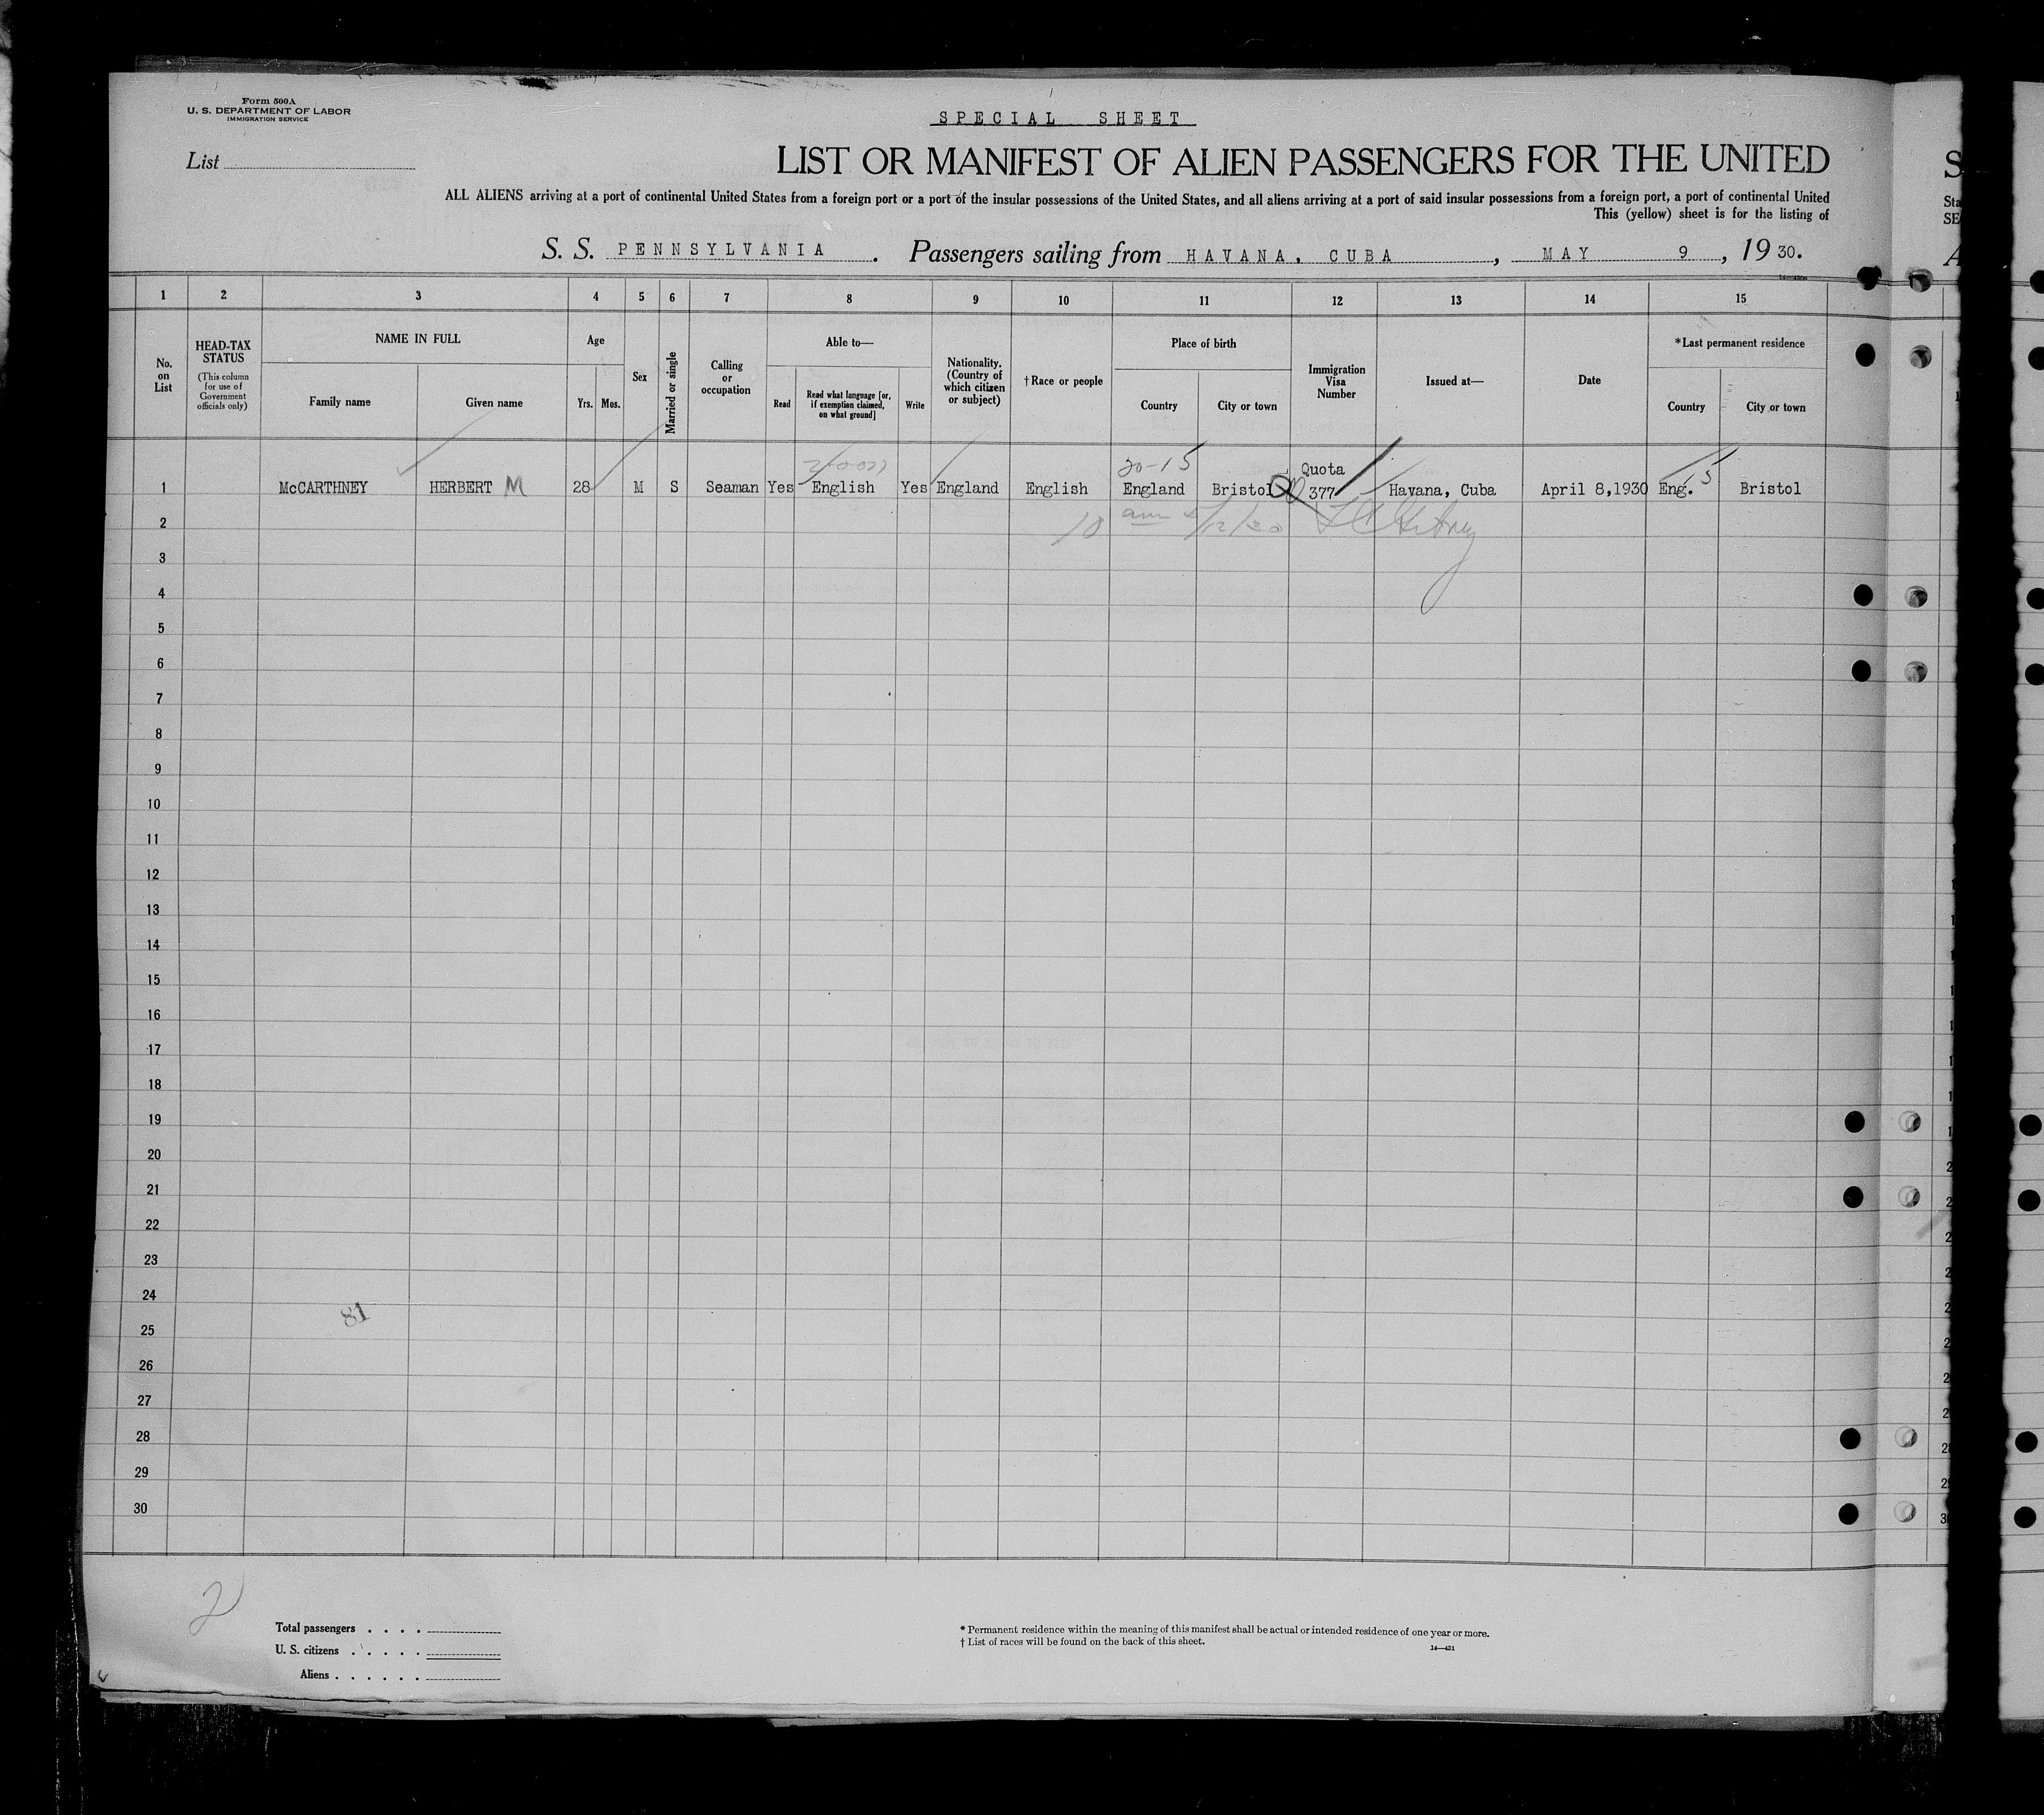 Form 500A
U. S. DEPARTMENT OF LABOR
IMMIGRATION SERVICE
SPECIAL SHEET
List
LIST OR MANIFEST OF ALIEN PASSENGERS FOR THE UNITED
ALL ALIENS arriving at a port of continental United States from a foreign port or a port of the insular possessions of the United States, and all aliens arriving at a port of said insular possessions from a foreign port, a port of continental United
This (yellow) sheet is for the listing of
S. S. PENNSYLVANIA. Passengers sailing from HAVANA, CUBA, MAY 9, 1930.
1 2 3 4 5 6 7 8 9 10 11 12 13 14 15
No. on List
HEAD-TAX STATUS
(This column for use of Government officials only)
NAME IN FULL
Family name
Given name
Age
Yrs. Mos.
Sex
Married or single
Calling or occupation
Able to—
Read
Read what language [or, if exemption claimed, on what ground]
Write
Nationality. (Country of which citizen or subject)
†Race or people
Place of birth
Country
City or town
Immigration Visa Number
Issued at—
Date
*Last permanent residence
Country
City or town
20-15
Quota
15
1 McCARTHNEY HERBERT M 28 M S Seaman Yes English Yes England English England Bristol 377 Havana, Cuba April 8,1930 Eng. Bristol
2
3
4
5
6
7
8
9
10
11
12
13
14
15
16
17
18
19
20
21
22
23
24
81
25
26
27
28
29
30
2
Total passengers
U. S. citizens
Aliens
* Permanent residence within the meaning of this manifest shall be actual or intended residence of one year or more.
† List of races will be found on the back of this sheet.
14—431